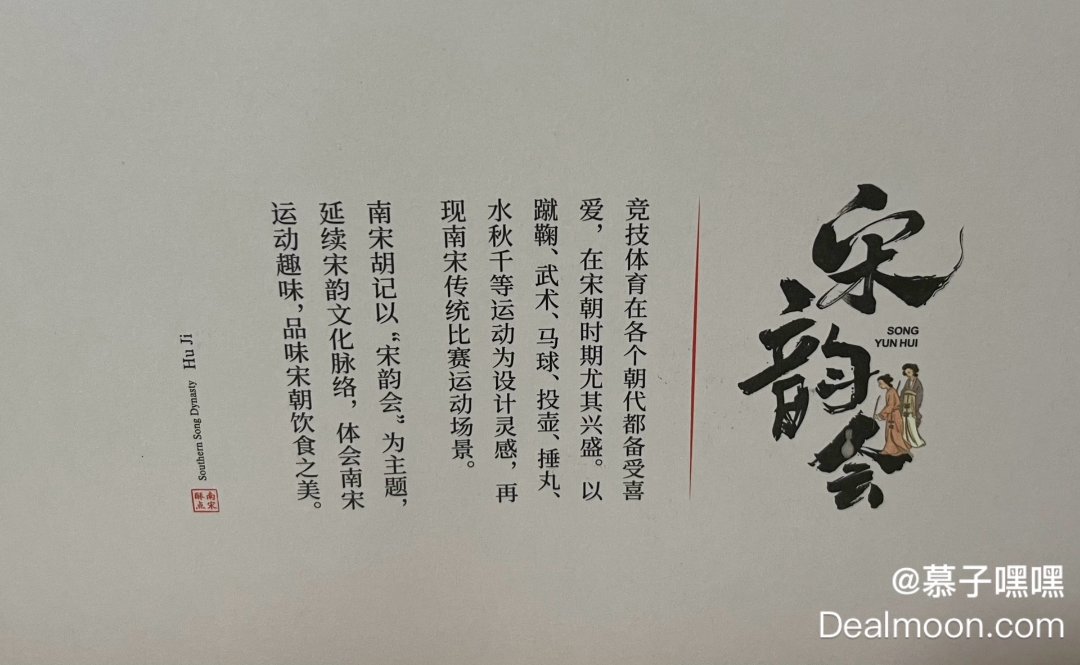 宋韵会
SONG
YUN HUI
竞技体育在各个朝代都备受喜
爱，在宋朝时期尤其兴盛。以
蹴鞠、武术、马球、投壶、捶丸、
水秋千等运动为设计灵感，再
现南宋传统比赛运动场景。
南宋胡记以“宋韵会”为主题，
延续宋韵文化脉络，体会南宋
运动趣味，品味宋朝饮食之美。
Southern Song Dynasty Hu Ji
南宋
酥点
@慕子嘿嘿
Dealmoon.com